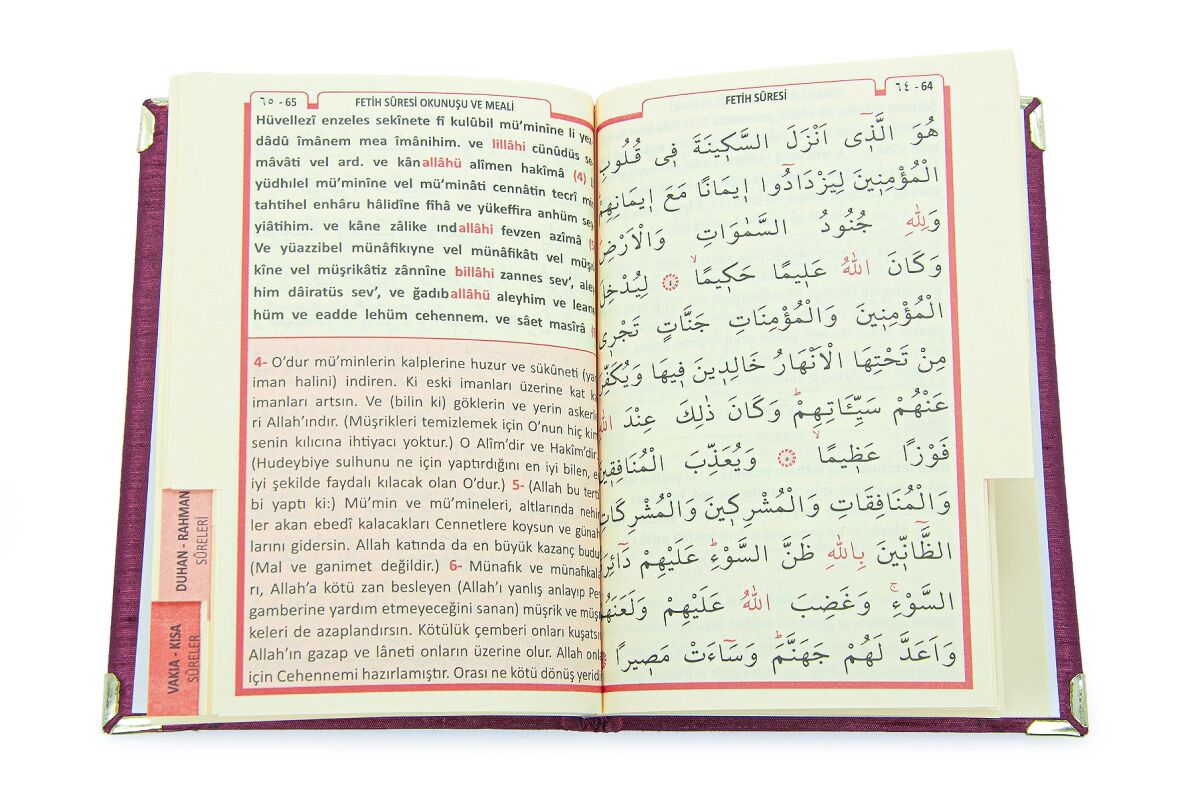 ٦٤ - 64
FETİH SÛRESİ
هُوَ الَّذٖٓى اَنْزَلَ السَّكٖينَةَ فٖى قُلُوبِ
الْمُؤْمِنٖينَ لِيَزْدَادُٓوا اٖيمَانًا مَعَ اٖيمَانِهِمْ
وَلِلّٰهِ جُنُودُ السَّمٰوَاتِ وَالْاَرْضِ
وَكَانَ اللّٰهُ عَلٖيمًا حَكٖيمًاۙ ﴿٤﴾ لِيُدْخِلَ
الْمُؤْمِنٖينَ وَالْمُؤْمِنَاتِ جَنَّاتٍ تَجْرٖى
مِنْ تَحْتِهَا الْاَنْهَارُ خَالِدٖينَ فٖيهَا وَيُكَفِّرَ
عَنْهُمْ سَيِّـَٔاتِهِمْؕ وَكَانَ ذٰلِكَ عِنْدَ اللّٰهِ
فَوْزًا عَظٖيمًاۙ ﴿٥﴾ وَيُعَذِّبَ الْمُنَافِقٖينَ
وَالْمُنَافِقَاتِ وَالْمُشْرِكٖينَ وَالْمُشْرِكَاتِ
الظَّٓانّٖينَ بِاللّٰهِ ظَنَّ السَّوْءِؕ عَلَيْهِمْ دَٓائِرَةُ
السَّوْءِۚ وَغَضِبَ اللّٰهُ عَلَيْهِمْ وَلَعَنَهُمْ
وَاَعَدَّ لَهُمْ جَهَنَّمَؕ وَسَٓاءَتْ مَصٖيرًا
٦٥ - 65
FETİH SÛRESİ OKUNUŞU VE MEALİ
Hüvellezî enzeles sekînete fî kulûbil mü’minîne li yez
dâdû îmânem mea îmânihim. ve lillâhi cünûdüs se
mâvâti vel ard. ve kânallâhü alîmen hakîmâ (4) l
yüdhılel mü’minîne vel mü’minâti cennâtin tecrî min
tahtihel enhâru hâlidîne fîhâ ve yükeffira anhüm sey
yiâtihim. ve kâne zâlike ındallâhi fevzen azîmâ
Ve yüazzibel münâfikıyne vel münâfikâti vel müş
kîne vel müşrikâtiz zânnîne billâhi zannes sev’, aley
him dâiratüs sev’, ve ğadıballâhü aleyhim ve leane
hüm ve eadde lehüm cehennem. ve sâet masîrâ
4- O’dur mü’minlerin kalplerine huzur ve sükûneti (ya
iman halini) indiren. Ki eski imanları üzerine kat ka
imanları artsın. Ve (bilin ki) göklerin ve yerin askerle
ri Allah’ındır. (Müşrikleri temizlemek için O’nun hiç kim
senin kılıcına ihtiyacı yoktur.) O Alîm’dir ve Hakîm’dir.
(Hudeybiye sulhunu ne için yaptırdığını en iyi bilen, e
iyi şekilde faydalı kılacak olan O’dur.) 5- (Allah bu terti
bi yaptı ki:) Mü’min ve mü’mineleri, altlarında nehir
ler akan ebedî kalacakları Cennetlere koysun ve günah
larını gidersin. Allah katında da en büyük kazanç budu
(Mal ve ganimet değildir.) 6- Münafık ve münafıkala
rı, Allah’a kötü zan besleyen (Allah’ı yanlış anlayıp Pey
gamberine yardım etmeyeceğini sanan) müşrik ve müş
keleri de azaplandırsın. Kötülük çemberi onları kuşatsı
Allah’ın gazap ve lâneti onların üzerine olur. Allah onla
için Cehennemi hazırlamıştır. Orası ne kötü dönüş yeridi
DUHAN - RAHMAN
SÛRELERİ
VAKIA - KISA
SÛRELER